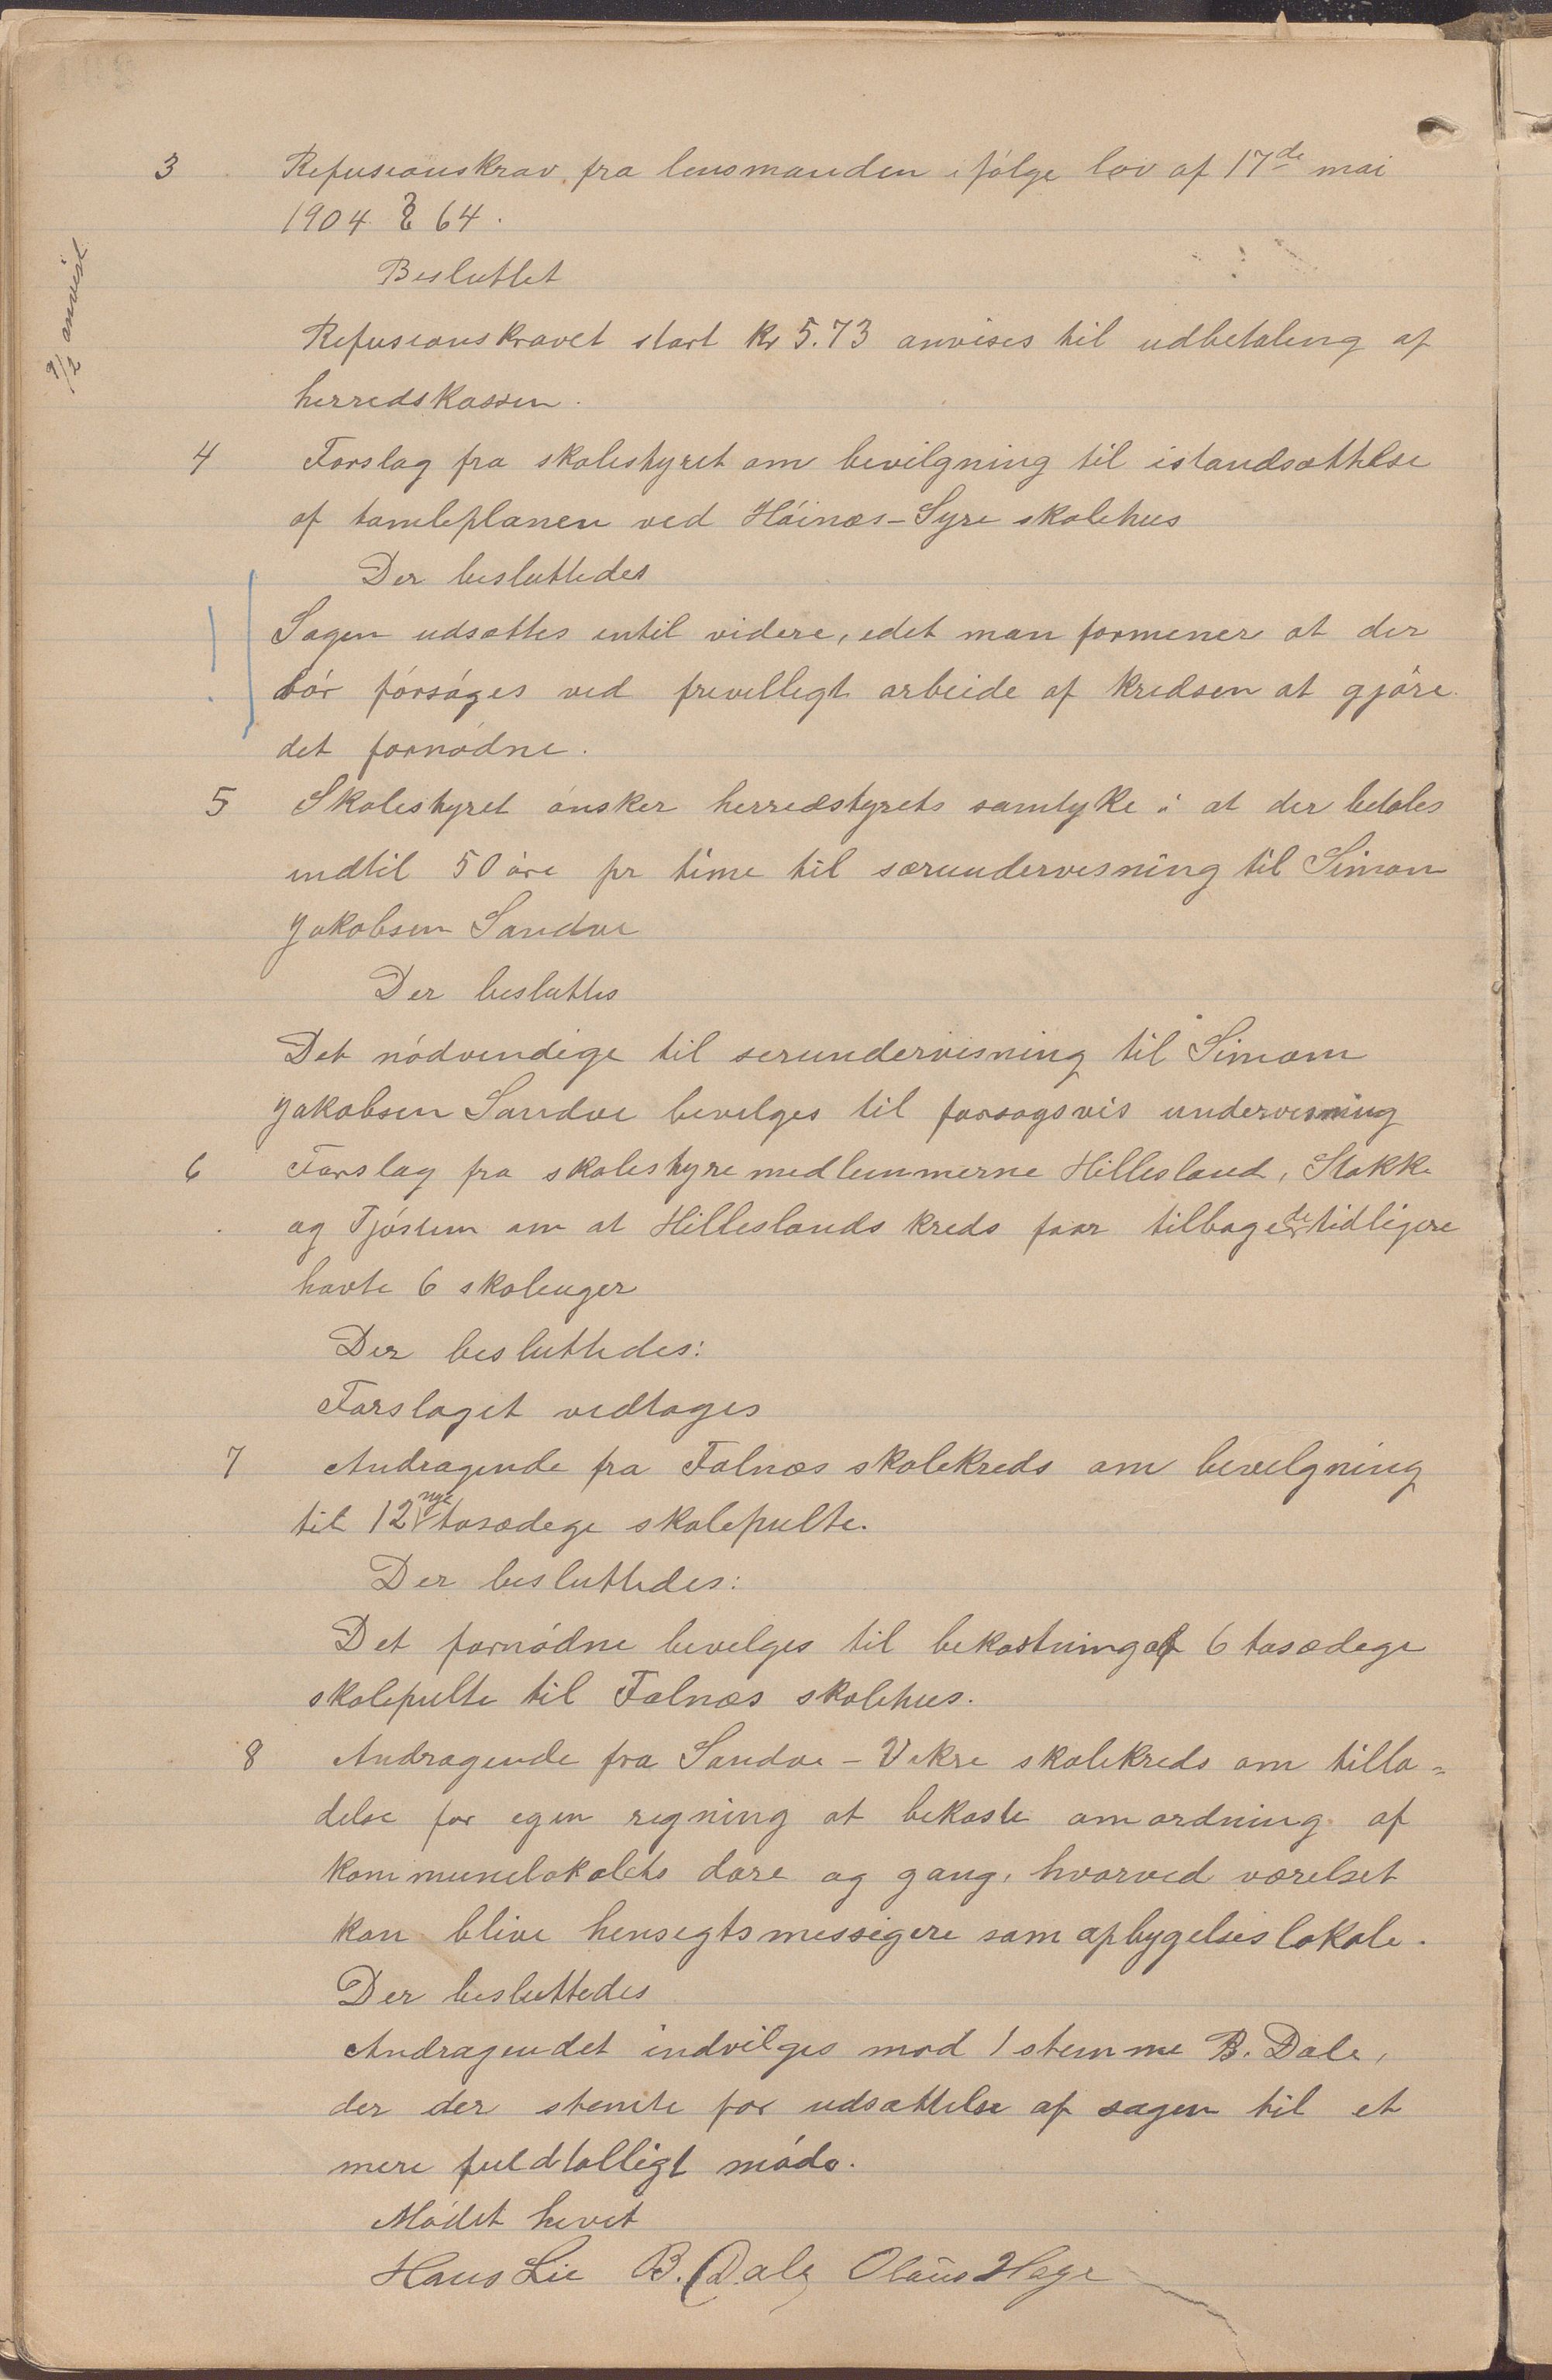 3 Refusionskrav fra lensmanden ifølge lov af 17de mai
1904 § 64.
Besluttet
Refusionskravet stort kr 5.73 anvises til udbetaling af
herredskassen.
9/2 anvist
4 Forslag fra skolestyret om bevilgning til istandsættelse
af tomteplanen ved Höinæs-Syre skolehus
Der besluttedes
Sagen udsættes intil videre, idet man formener at der
bör försöges ved frivilligt arbeide af kredsen at gjöre
det fornödne.
5 Skolestyret önsker herredstyrets samtyke i at der betales
indtil 50 öre pr time til særundervisning til Simon
Jakobsen Sandve
Der besluttes
Det nödvendige til serundervisning til Simom
Jakobsen Sandve bevilges til forsogsvis undervisning
6 Forslag fra skolestyremedlemmerne Hillesland, Stokke
og Tjöstem om at Hilleslands kreds faar tilbage de tidligere
havte 6 skoleuger
Der besluttedes:
Forslaget vedtages
7 Andragende fra Falnæs skolekreds om bevilgning
til 12 nye tosædege skolepulte.
Der besluttedes:
Det fornödne bevilges til bekostning af 6 tosædege
skolepulte til Falnæs skolehus.
8 Andragende fra Sandve - Vikre skolekreds om tilla=
delse for egen regning at bekoste omordning af
kommunelokalets dore og gang, hvorved værelset
kan blive hensegtsmessigere som opbygelseslokale.
Der besluttedes
Andragendet indvilges mod 1 stemme B. Dale,
der der stemte for udsættelse af sagen til et
mere fuldtalligt möde.
Mödet hevet
Hans Lie B. Dale Olaus Hage